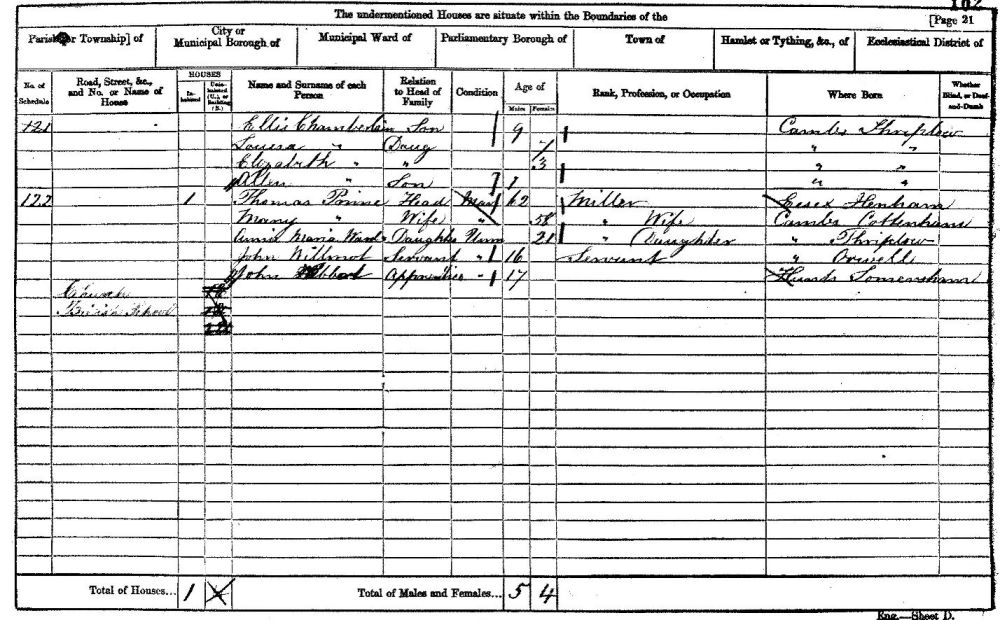 162
The undermentioned Houses are situate within the Boundaries of the
[Page 21
Parish [or Township] of
City or Municipal Borough of
Municipal Ward of
Parliamentary Borough of
Town of
Hamlet or Tything, &c., of
Ecclesiastical District of
No. of Schedule
Road, Street, &c., and No. or Name of House
HOUSES
Inhabited
Uninhabited (U.), or Building (B.)
Name and Surname of each Person
Relation to Head of Family
Condition
Age of
Males
Females
Rank, Profession, or Occupation
Where Born
Whether Blind, or Deaf-and-Dumb
121 Ellis Chamberlain Son 9 Cambs Thriplow
Louisa " Daug 7 " "
Elizabeth " " 3 " "
Allen " Son 1 " "
122 1 Thomas Prime Head Mar 62 Miller Essex Henham
Mary " Wife " 58 " Wife Cambs Cottenham
Annie Maria Ward Daughter Unm 21 " Daughter " Thriplow
John Willmot Servant " 16 Servant " Orwell
John Apprentice " 17 Hunts Somersham
Church
British School
Total of Houses... 1
Total of Males and Females... 5 4
Eng.—Sheet D.